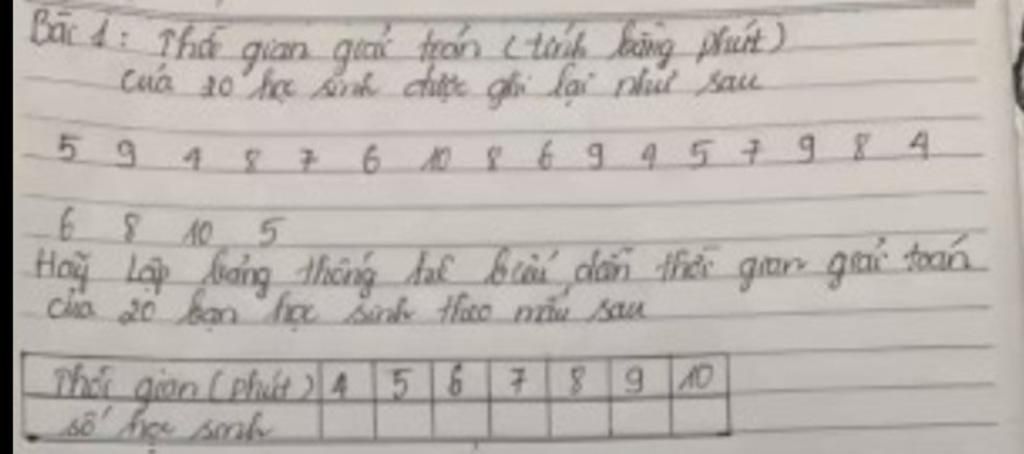 Bài 1: Thời gian giải toán (tính bằng phút)
của 20 học sinh được ghi lại như sau
5 9 4 8 7 6 10 8 6 9 4 5 7 9 8 4
6 8 10 5
Hãy Lập bảng thống kê biểu diễn thời gian giải toán
của 20 bạn học sinh theo mẫu sau
Thời gian (phút) 4 5 6 7 8 9 10
số học sinh